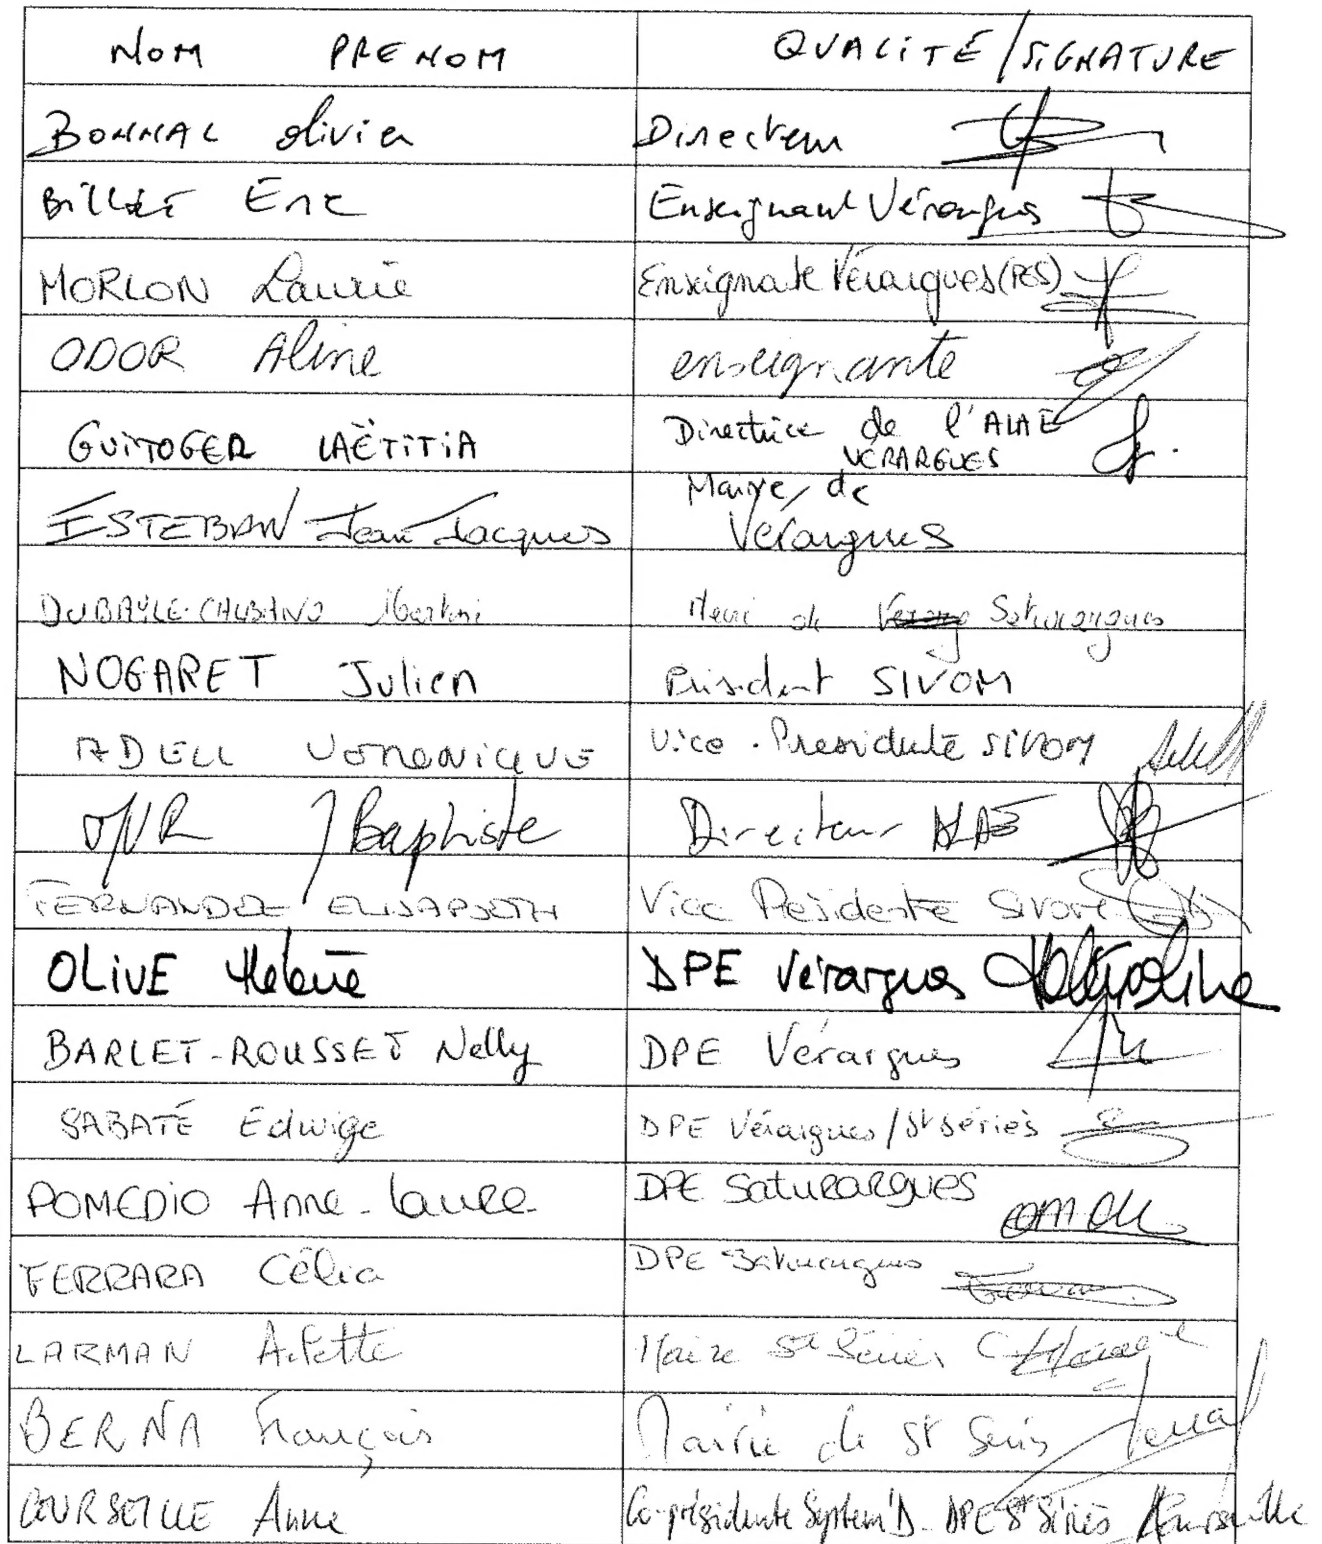 NOM PRENOM QUALITÉ/SIGNATURE
BONNAL Olivier Directeur
BILLET Eric Enseignant Vérargues
MORLON Laurie Enseignante Vérargues (PES)
ODOR Aline enseignante
GUITOGER LAËTITIA Directrice de l'ALAE
VÉRARGUES
ESTEBAN Jean Jacques Maire de
Vérargues
Martine de Saturargues
NOGARET Julien Président SIVOM
ADELL VERONIQUE Vice-Presidente SIVOM
JBaptiste Directeur ALAE
FERNANDEZ Vice Présidente Sivom
OLIVE Helene DPE Vérargues
BARLET-ROUSSET Nelly DPE Vérargues
SABATÉ Edwige DPE Vérargues/St Séries
POMEDIO Anne-Laure DPE Saturargues
FERRARA Célia DPE Saturargues
LARMAN Maire St Séries
BERNA François Mairie de St Seriès
COURSEILLE Anne Co-présidente System'D - DPE St Séries